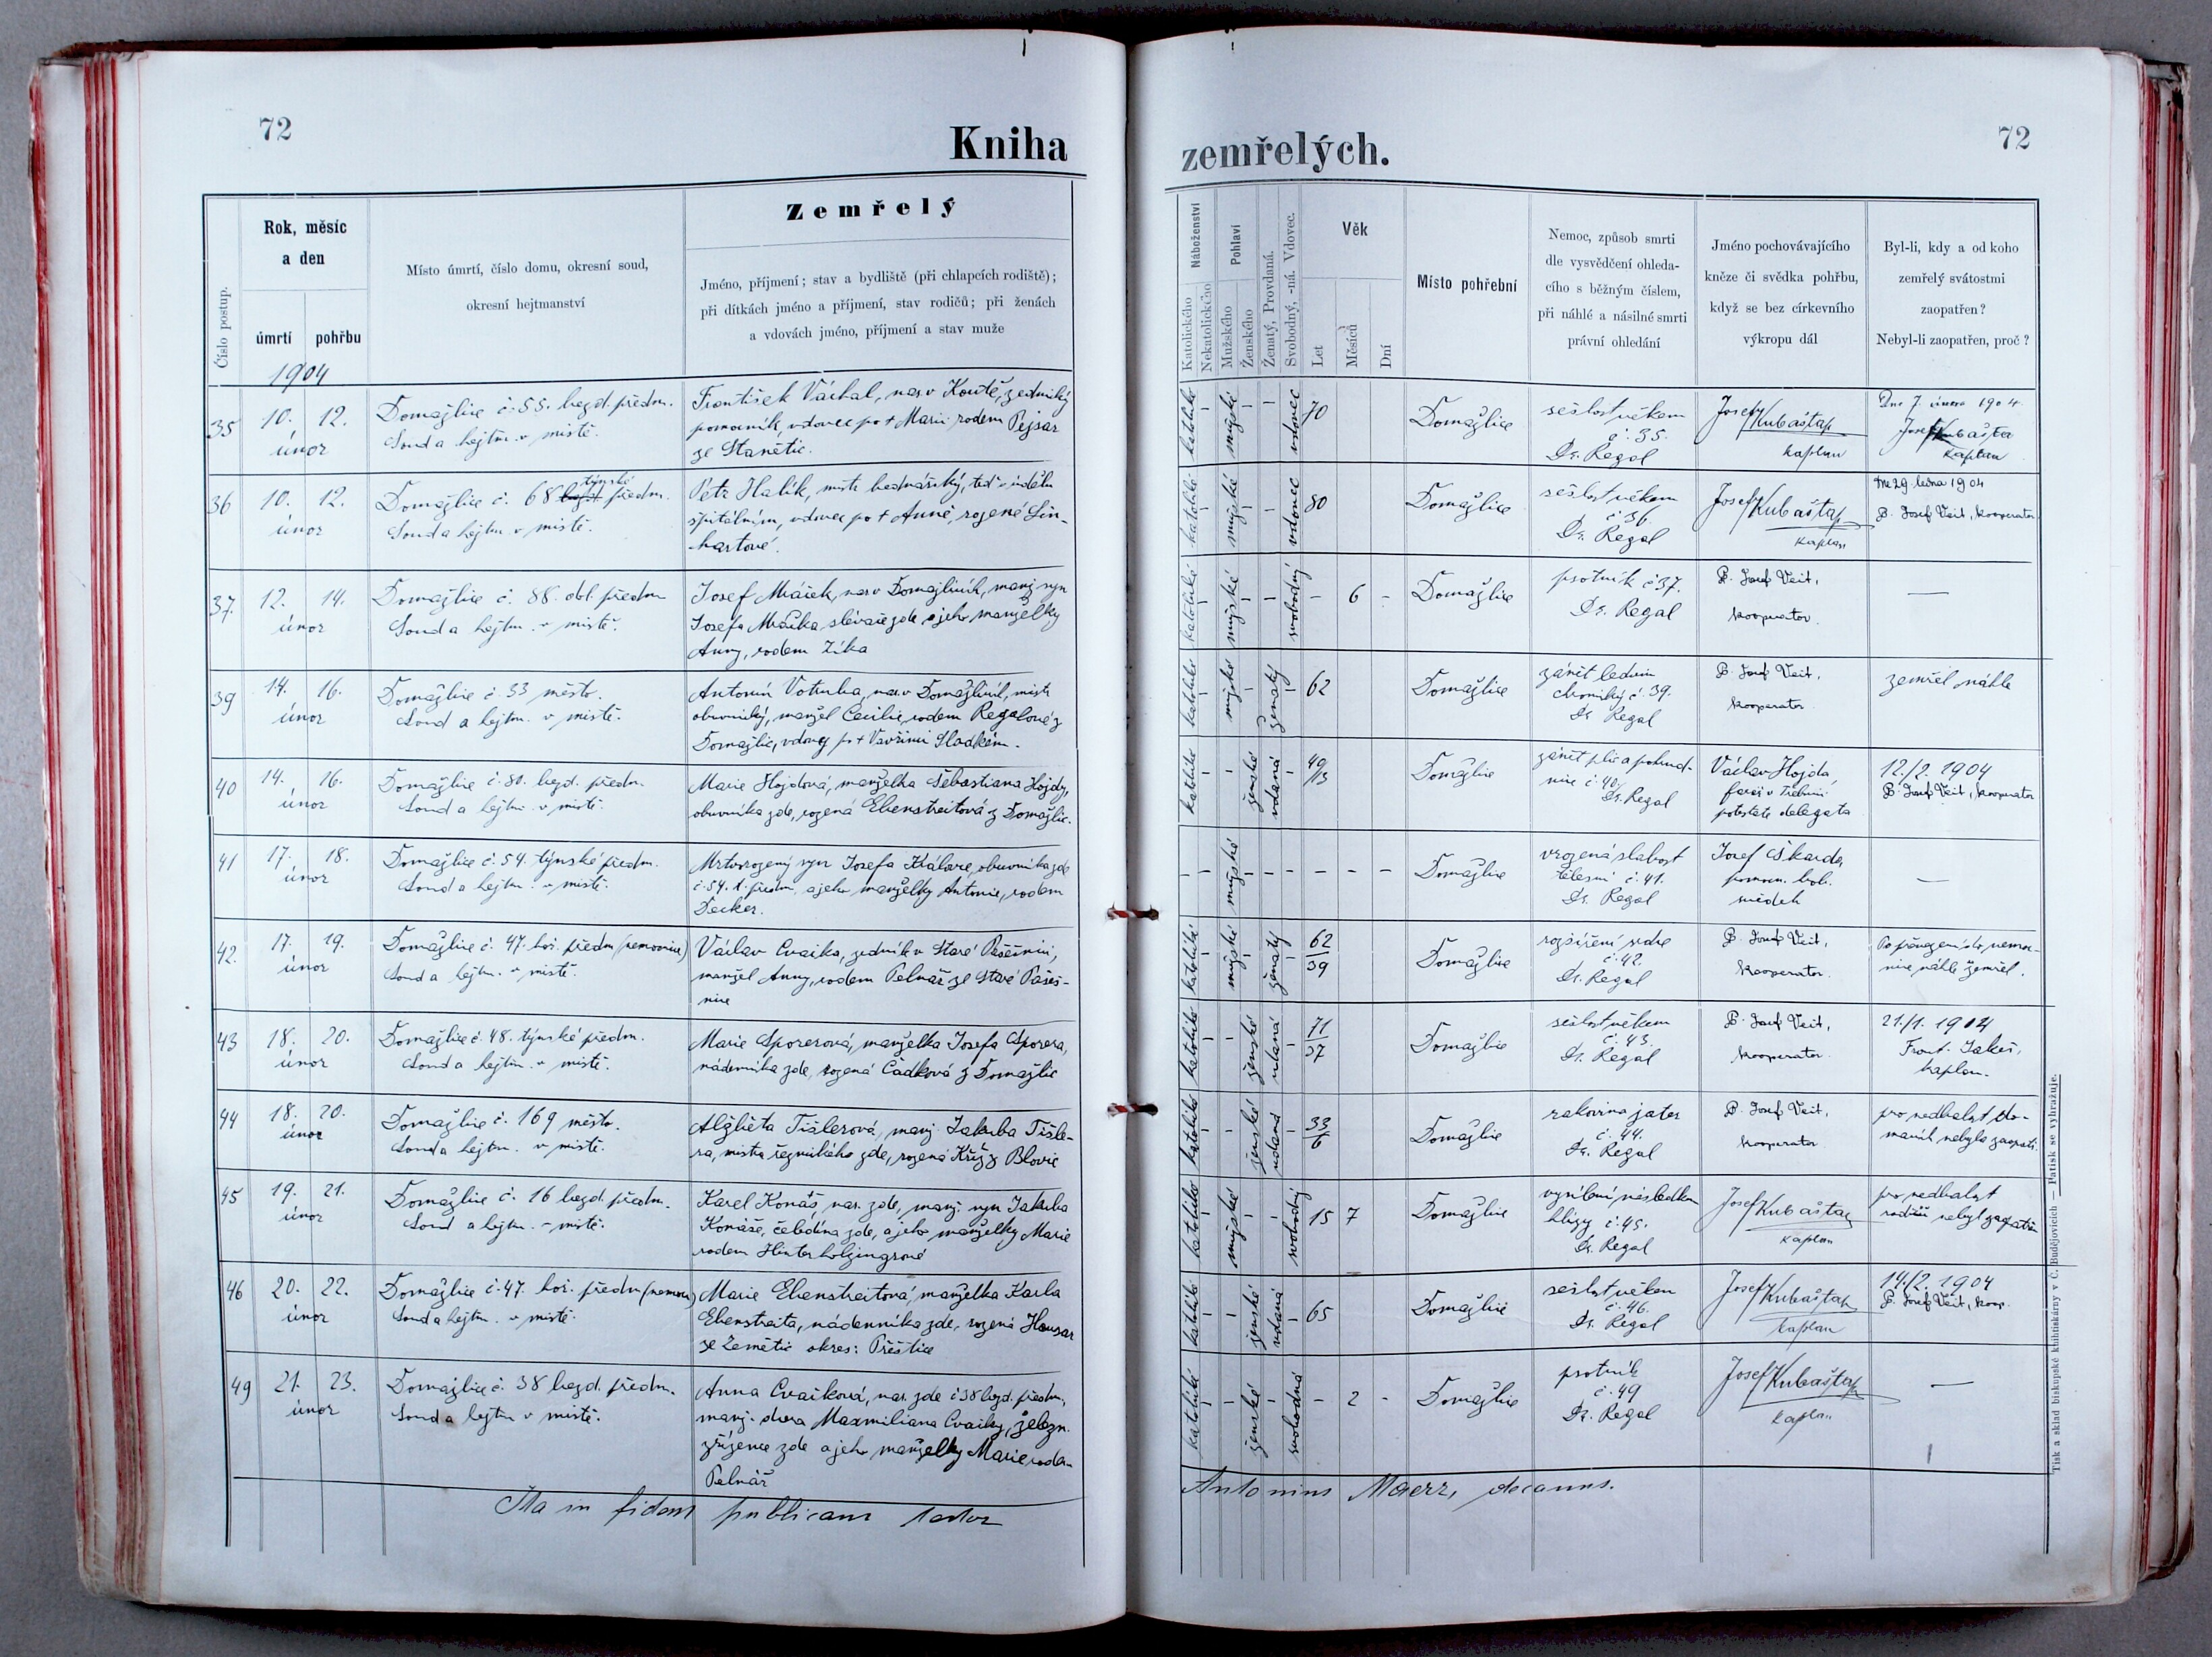 72
Kniha
Číslo postup.
Rok, měsíc
a den
úmrtí
pohřbu
1904
Místo úmrtí, číslo domu, okresní soud,
okresní hejtmanství
Zemřelý
Jméno, příjmení; stav a bydliště (při chlapcích rodiště);
při dítkách jméno a příjmení, stav rodičů; při ženách
a vdovách jméno, příjmení a stav muže
35
10. 12.
únor
Domažlice č. 55. bezd. předm.
Soud a hejtm. v místě.
František Váchal, nar. v Koutě, zednický
pomocník, vdovec po + Marii rodem Pejsar
ze Stanětic.
36
10. 12.
únor
týnské
Domažlice č. 68 předm.
Soud a hejtm. v místě.
Petr Halík, mistr bednářský, teď v údělu
špitálním, vdovec po + Anně, rozené Lin-
hartové.
37.
12. 14.
únor
Domažlice č. 88. předm
Soud a hejtm. v místě.
Josef Mráček, nar. v Domažlicích, manž. syn
Josefa Mráčka slévače zde a jeho manželky
Anny, rodem Zíka
39
14. 16.
únor
Domažlice č. 33 město.
Soud a hejtm. v místě.
Antonín Votruba, nar. v Domažlicích, mistr
obuvnický, manžel Cecilie, rodem Regalové z
Domažlic, vdovy po + Vavřinci Sladkém.
40
14. 16.
únor
Domažlice č. 80. bezd. předm.
Soud a hejtm. v místě.
Marie Hojdová, manželka Šebastiana Hojdy,
obuvníka zde, rozená Ebenstreitová z Domažlic.
41
17. 18.
únor
Domažlice č. 54. týnské předm.
Soud a hejtm. v místě.
Mrtvorozený syn Josefa Kálala, obuvníka zde
č. 54. t. předm. a jeho manželky Antonie, rodem
Decker.
42.
17. 19.
únor
Domažlice č. 47. hoř. předm (nemocnice)
Soud a hejtm. v místě.
Václav Cvačka, zedník v Staré Pasečnici,
manžel Anny, rodem Pelnář ze Staré Paseč-
nice
43
18. 20.
únor
Domažlice č. 48. týnské předm.
Soud a hejtm. v místě.
Marie Sporerová, manželka Josefa Sporera,
nádenníka zde, rozená Čadková z Domažlic
44
18. 20.
únor
Domažlice č. 169 město.
Soud a hejtm. v místě.
Alžběta Tišlerová, manž. Jakuba Tišle-
ra, mistra řeznického zde, rozená Kříž z Blovic
45
19. 21.
únor
Domažlice č. 16 bezd. předm.
Soud a hejtm. v místě.
Karel Konáš, nar. zde, manž. syn Jakuba
Konáše, čeledína zde, a jeho manželky Marie
rodem Hinterholzingrové
46
20. 22.
únor
Domažlice č. 47. hoř. předm (nemocn)
Soud a hejtm. v místě.
Marie Ebenstreitová, manželka Karla
Ebenstreita, nádenníka zde, rozená Housar
ze Zemětic okres: Přeštice
49
21. 23.
únor
Domažlice č. 38 bezd. předm.
Soud a hejtm v místě.
Anna Cvačková, nar. zde č 38 bezd. předm,
manž. dcera Maxmiliana Cvačky, železn.
zřízence zde a jeho manželky Marie rodem
Pelnář
Ita in fidem publicam testor
zemřelých.
72
Náboženství
Katolického
Nekatolického
Pohlaví
Mužského
Ženského
Ženatý, Provdaná.
Svobodný, -ná. Vdovec.
Věk
Let
Měsíců
Dní
Místo pohřební
Nemoc, způsob smrti
dle vysvědčení ohleda-
cího s běžným číslem,
při náhlé a násilné smrti
právní ohledání
Jméno pochovávajícího
kněze či svědka pohřbu,
když se bez církevního
výkropu dál
Byl-li, kdy a od koho
zemřelý svátostmi
zaopatřen?
Nebyl-li zaopatřen, proč?
katolické - mužské - - vdovec 70
Domažlice
sešlost věkem
č. 35.
Dr. Regal
Josef Kubašta
kaplan
Dne 7. února 1904
Josef Kubašta
kaplan
katolické - mužské - - vdovec 80
Domažlice
sešlost věkem
č 36.
Dr. Regal
Josef Kubašta
kaplan
Dne 29. ledna 1904
P. Josef Veit, kooperator
katolické - mužské - - svobodný - 6 -
Domažlice
psotník č 37.
Dr. Regal
P. Josef Veit,
kooperator.
—
katolické - mužské - ženatý - 62
Domažlice
zánět ledvin
chronický č. 39.
Dr. Regal
P. Josef Veit,
kooperator
zemřel náhle
katolické - - ženské vdaná - 49/13
Domažlice
zánět plic a pohrud-
nice č. 40.
Dr. Regal
Václav Hojda,
potestate delegata
12./2. 1904
P. Josef Veit, kooperator
- - mužské - - - - - -
Domažlice
vrozená slabost
tělesní č. 41.
Dr. Regal
Josef Škarda
pomocn. hrob.
svědek
—
katolické - mužské - ženatý - 62/39
Domažlice
rozšíření srdce
č. 42.
Dr. Regal
P. Josef Veit,
kooperator.
Po převezení do nemoc-
nice náhle zemřel.
katolické - - ženské vdaná - 71/37
Domažlice
sešlost věkem
č. 43.
Dr. Regal
P. Josef Veit,
kooperator.
21./1. 1904
Frant. Jakeš,
kaplan.
katolické - - ženské vdaná - 33/6
Domažlice
rakovina jater
č. 44.
Dr. Regal
P. Josef Veit,
kooperator
pro nedbalost do-
mácích nebyla zaopatř.
katolické - mužské - - svobodný 15 7
Domažlice
vysílení následkem
hlízy č. 45.
Dr. Regal
Josef Kubašta
kaplan
pro nedbalost
rodičů nebyl zaopatřen
katolické - - ženské vdaná - 65
Domažlice
sešlost věkem
č. 46.
Dr. Regal
Josef Kubašta
kaplan
14./2. 1904
P. Josef Veit, koop.
katolické - - ženské - svobodná - 2 -
Domažlice
psotník
č. 49
Dr. Regal
Josef Kubašta
kaplan
—
Antonius Maerz, decanus.
Tisk a sklad biskupské knihtiskárny v Č. Budějovicích — Patisk se vyhražuje.